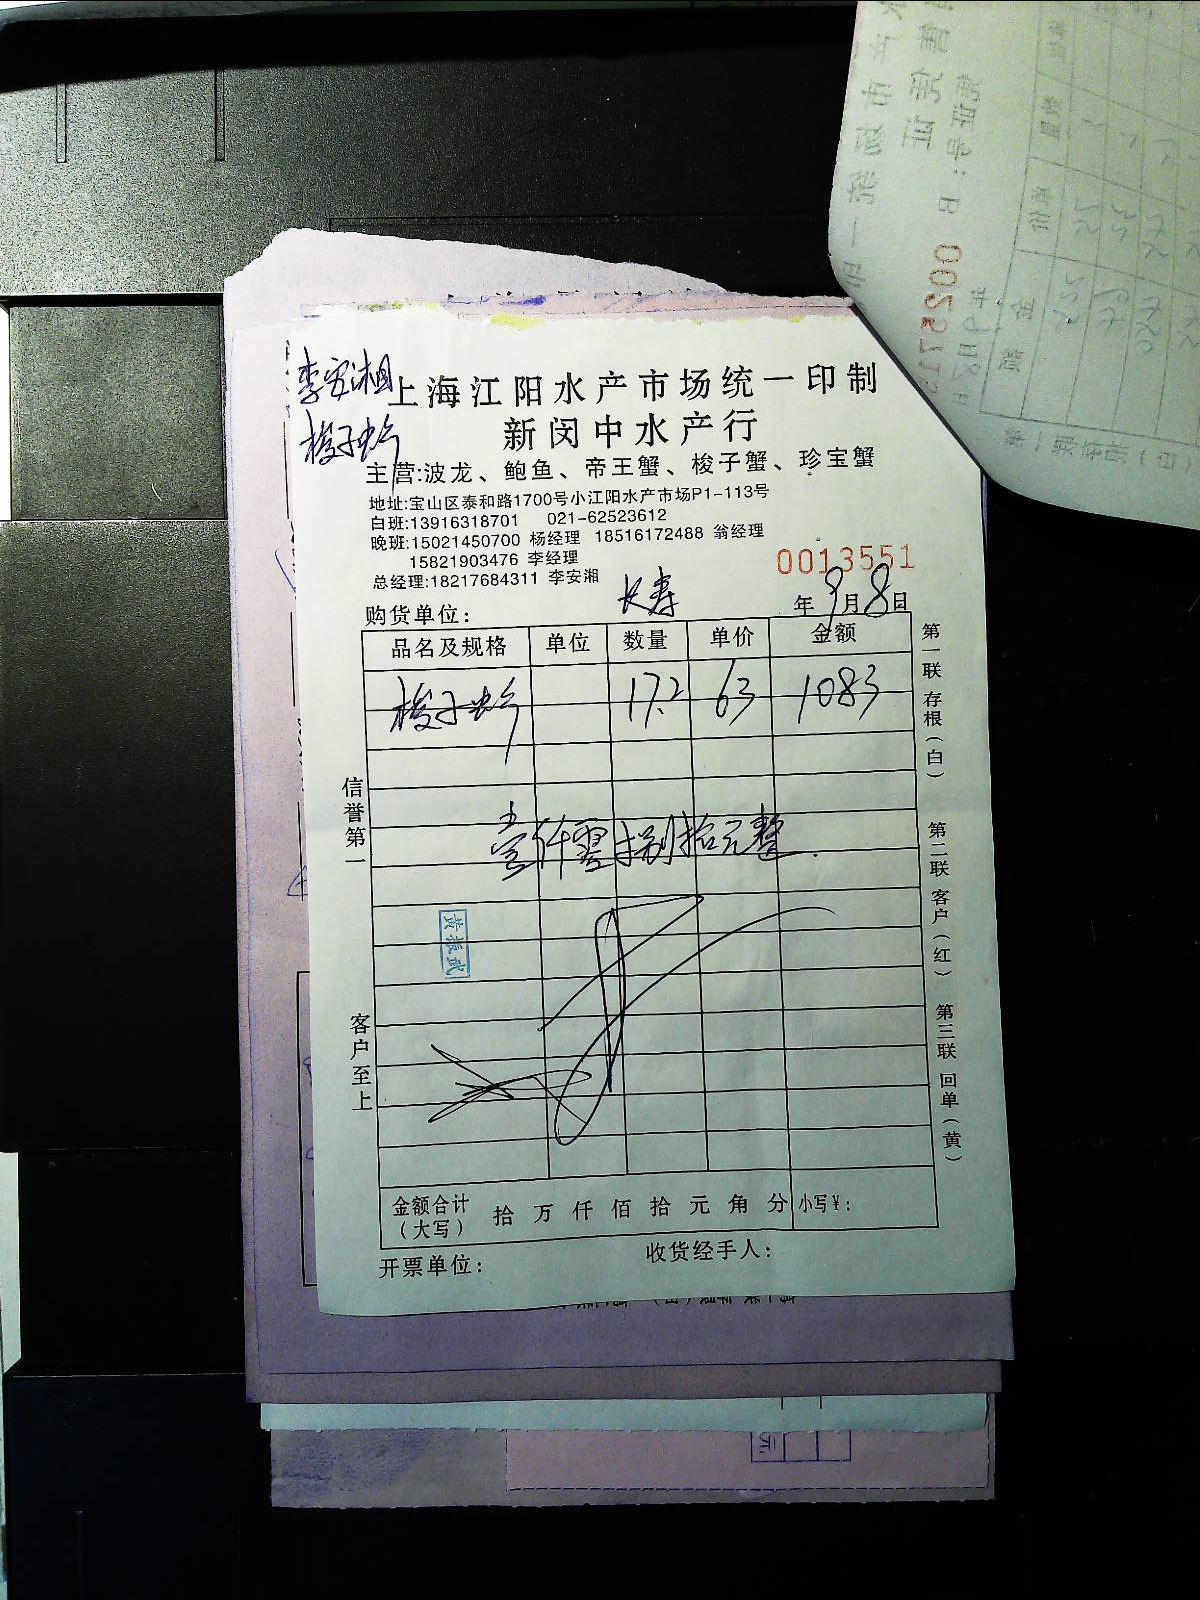 李安湘
梭子蟹
上海江阳水产市场统一印制
新闵中水产行
主营:波龙、鲍鱼、帝王蟹、梭子蟹、珍宝蟹
地址:宝山区泰和路1700号小江阳水产市场P1-113号
白班:13916318701 021-62523612
晚班:15021450700 杨经理 18516172488 翁经理
15821903476 李经理
总经理:18217684311 李安湘
0013551
购货单位: 长寿 年 9月8日
品名及规格 单位 数量 单价 金额
梭子蟹 17.2 63 1083
壹仟零捌拾元整
黄振武
信誉第一
客户至上
第一联 存根(白)
第二联 客户(红)
第三联 回单(黄)
金额合计(大写) 拾 万 仟 佰 拾 元 角 分 小写¥:
开票单位: 收货经手人: